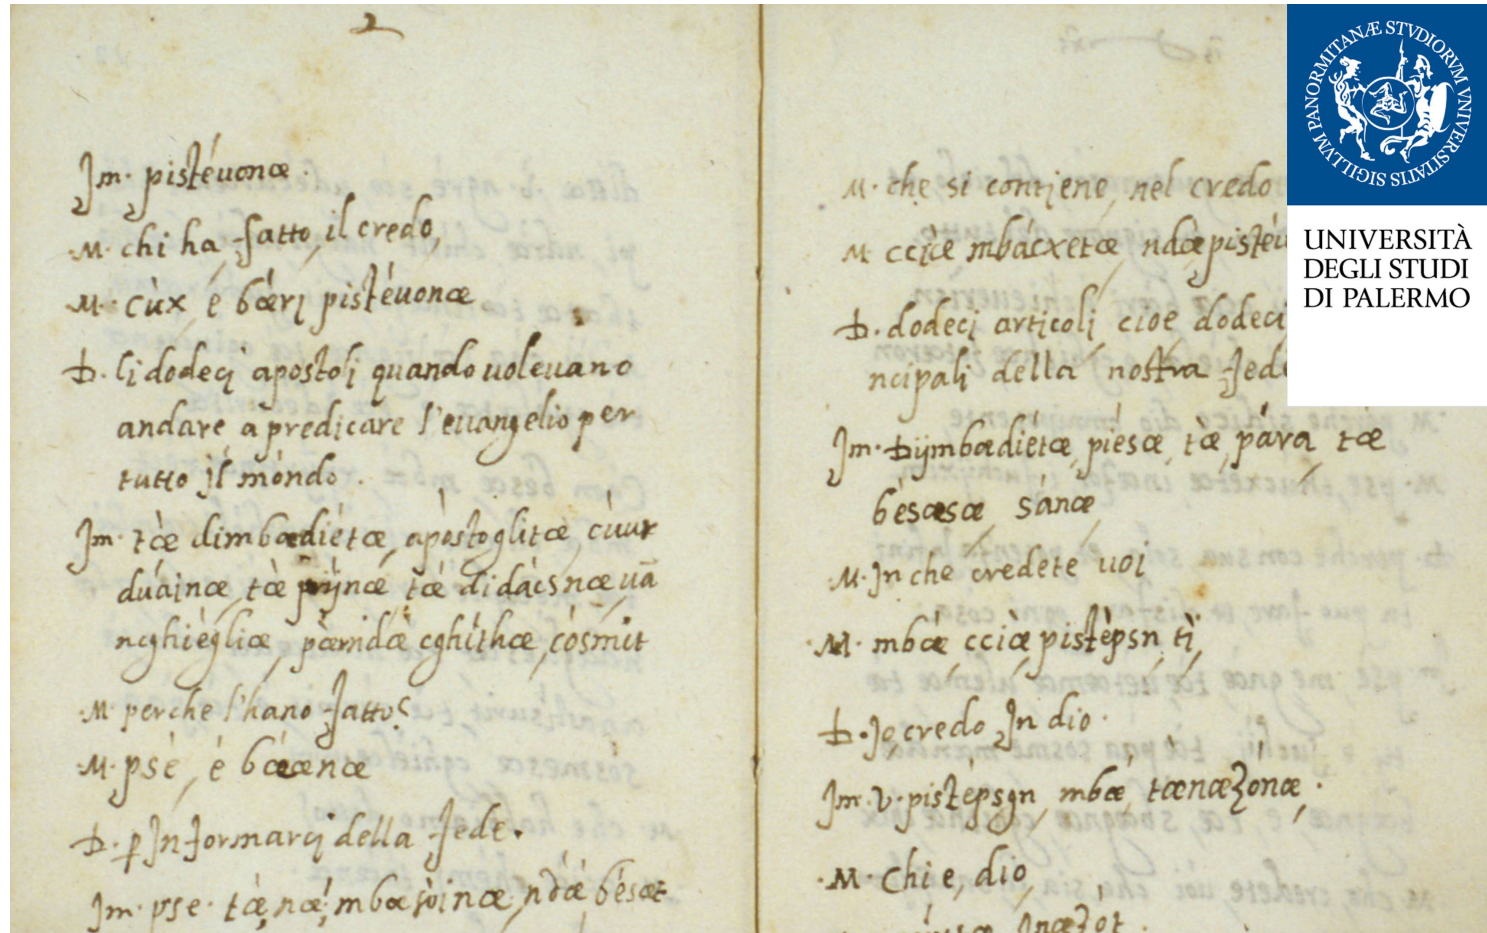 2
Jm. pistéuonæ.
M. chi ha fatto, il credo,
M. cùx é bæri pistéuonæ
D. li dodeci apostoli quando uoleuano
andare à predicare l'euangelio per
tutto il móndo.
Jm. tàe dimbædiétæ, apóstoglitæ, cùur
duáinæ, tàe tàe didácsnæ uā
nchièghliæ, pærndæ cghíthæ, cósmit
M. perche l'hano fatto?
M. psé, é bææ̀næ
D. ꝑ Informarci della fede.
Jm. pse. tàe, næ, mbæ ndæ bésæt
M. che si contiene, nel credo
M ccìæ mbácxetæ ndæpistéu
D. dodeci articoli cioe dodeci
ncipali della nostra fede
Jm. Dijmbædiétæ, piésæ, tæ, pára tæ
bésæsæ sánæ
M. In che credete uoi
M. mbæ cciæ pistèpsn, tì,
D. Jo credo In dio.
Jm. V. pistépsgn, mbæ, tænæzonæ.
M. Chi e, dio,
SIGILLVM PANORMITANÆ STVDIORVM VNIVERSITATIS
UNIVERSITÀ
DEGLI STUDI
DI PALERMO